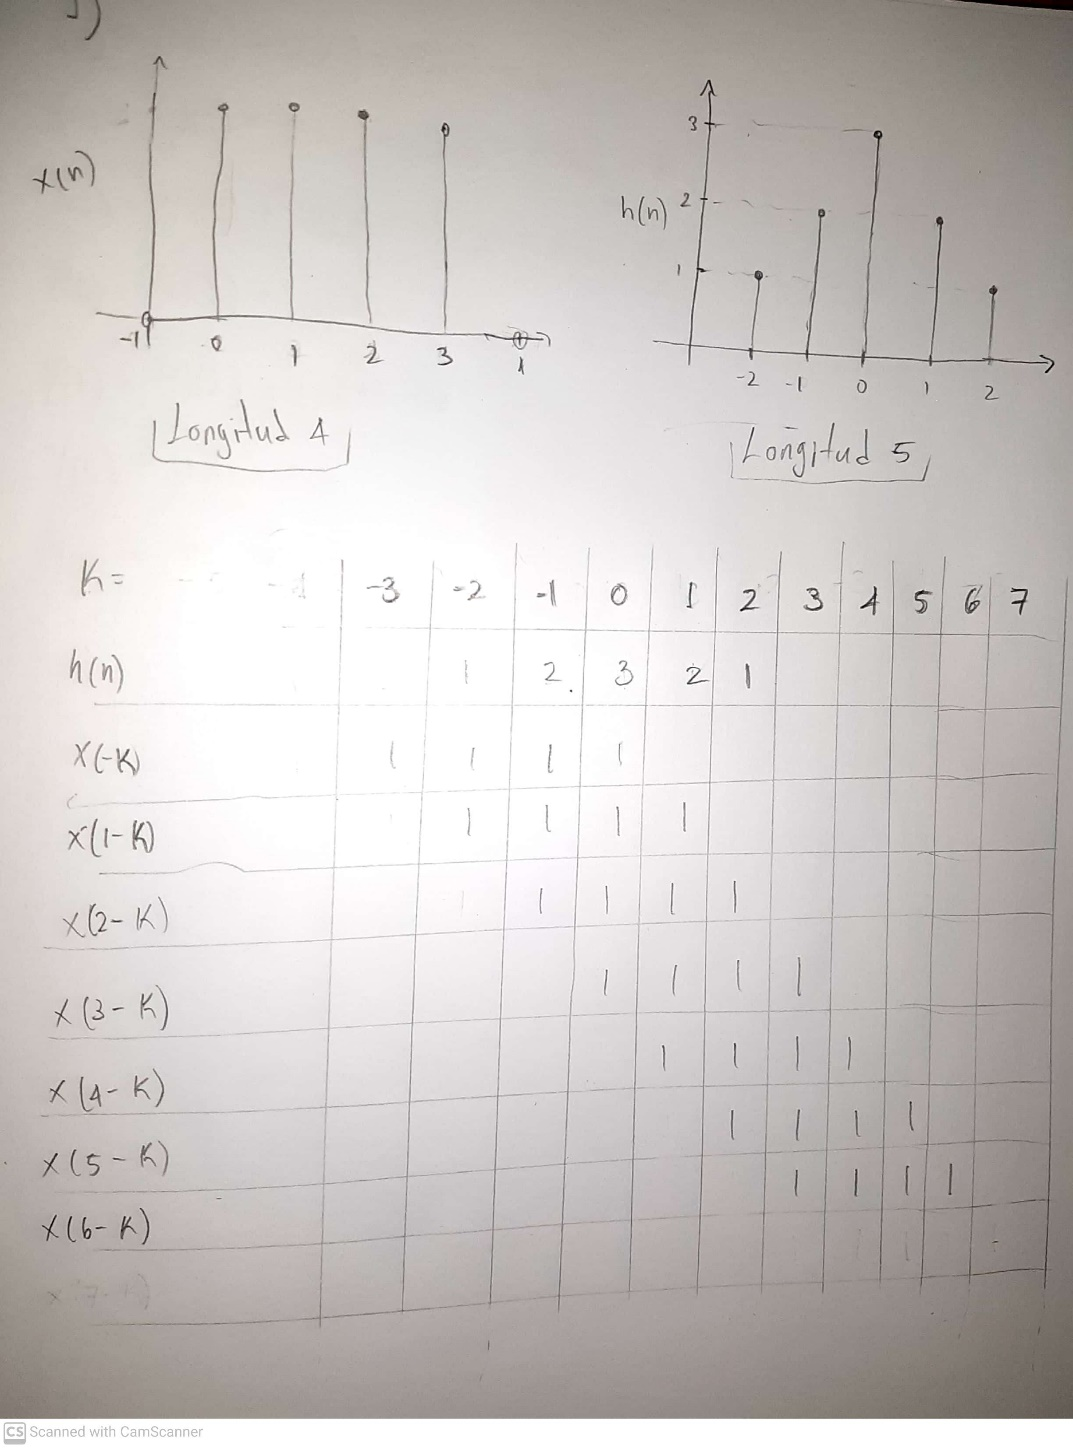 x(n)
-1 0 1 2 3 4
Longitud 4
h(n)
3
2
1
-2 -1 0 1 2
Longitud 5
K= -3 -2 -1 0 1 2 3 4 5 6 7
h(n) 1 2. 3 2 1
x(-K) 1 1 1 1
x(1-K) 1 1 1 1
x(2-K) 1 1 1 1
x(3-K) 1 1 1 1
x(4-K) 1 1 1 1
x(5-K) 1 1 1 1
x(6-K) 1 1 1 1
CS Scanned with CamScanner